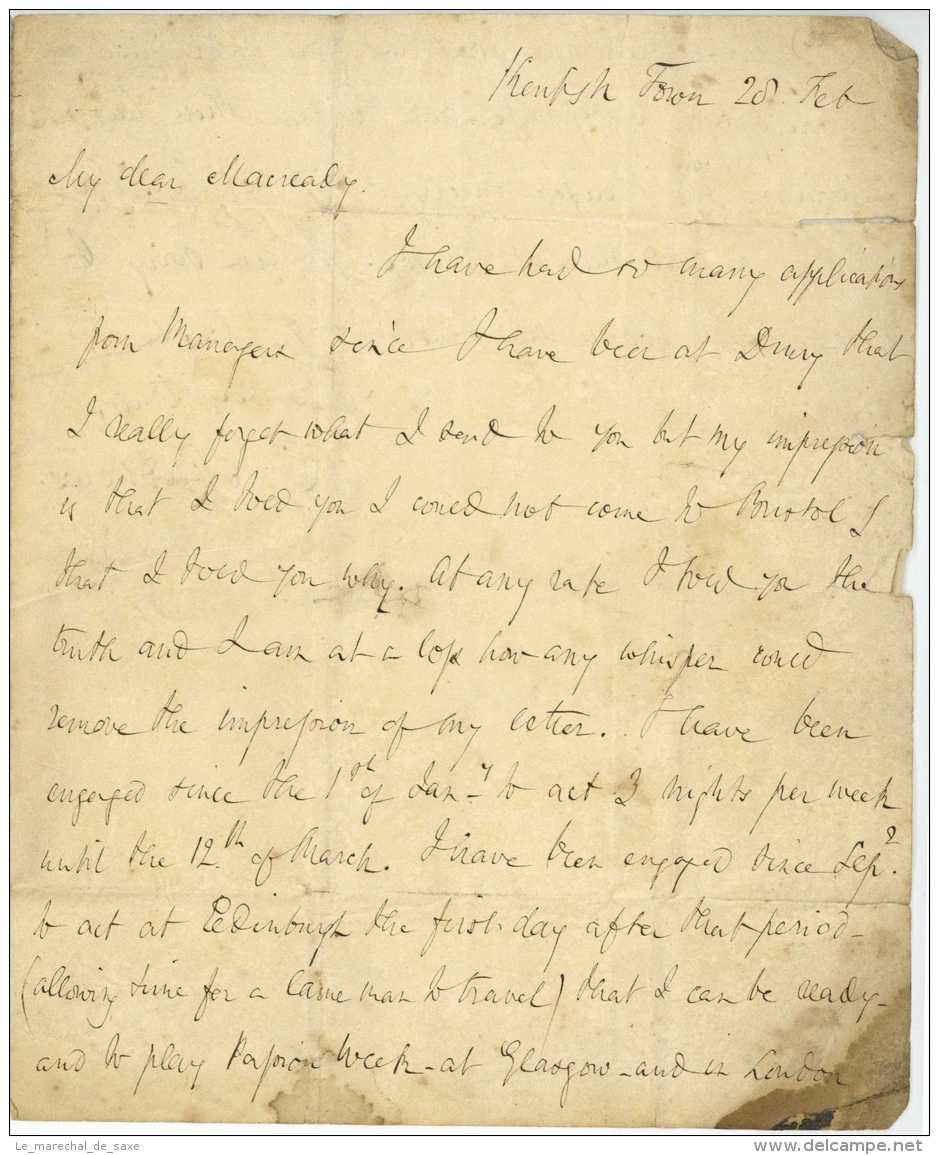 Kentish Town 28 Feb
My dear Macready.
I have had so many applications
from Managers since I have been at Drury that
I really forget what I send to you but my impression
is that I told you I could not come to Bristol &
that I told you why. At any rate I told you the
truth and I am at a loss how any whisper could
remove the impression of my letter. I have been
engaged since the 1st of Jan-y to act 3 nights per week
until the 12th of March. I have been engaged since Sep.
to act at Edinburgh the first day after that period-
(allowing time for a lame man to travel) that I can be ready-
and to play Passion Week - at Glasgow - and in London
Le_marechal_de_saxe
www.delcampe.net